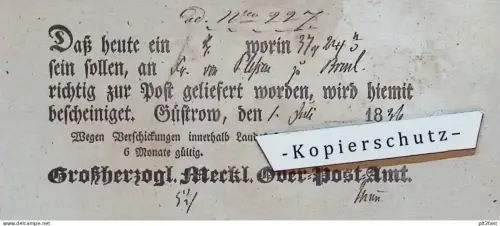 ad. Nro 227
Daß heute ein worin
sein sollen, an zu
richtig zur Post geliefert worden, wird hiemit
bescheiniget. Güstrow, den 1. Juli 1836
Wegen Verschickungen innerhalb
6 Monate gültig.
-Kopierschutz-
Großherzogl. Meckl. Ober-Post-Amt.